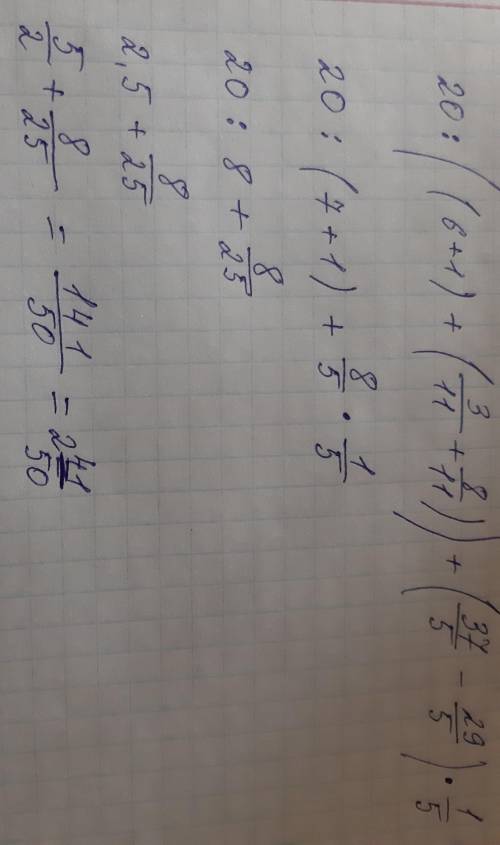 20 : ((6+1) + (3/11 + 8/11)) + (37/5 - 29/5) · 1/5
20 : (7+1) + 8/5 · 1/5
20 : 8 + 8/25
2,5 + 8/25
5/2 + 8/25 = 141/50 = 2 41/50